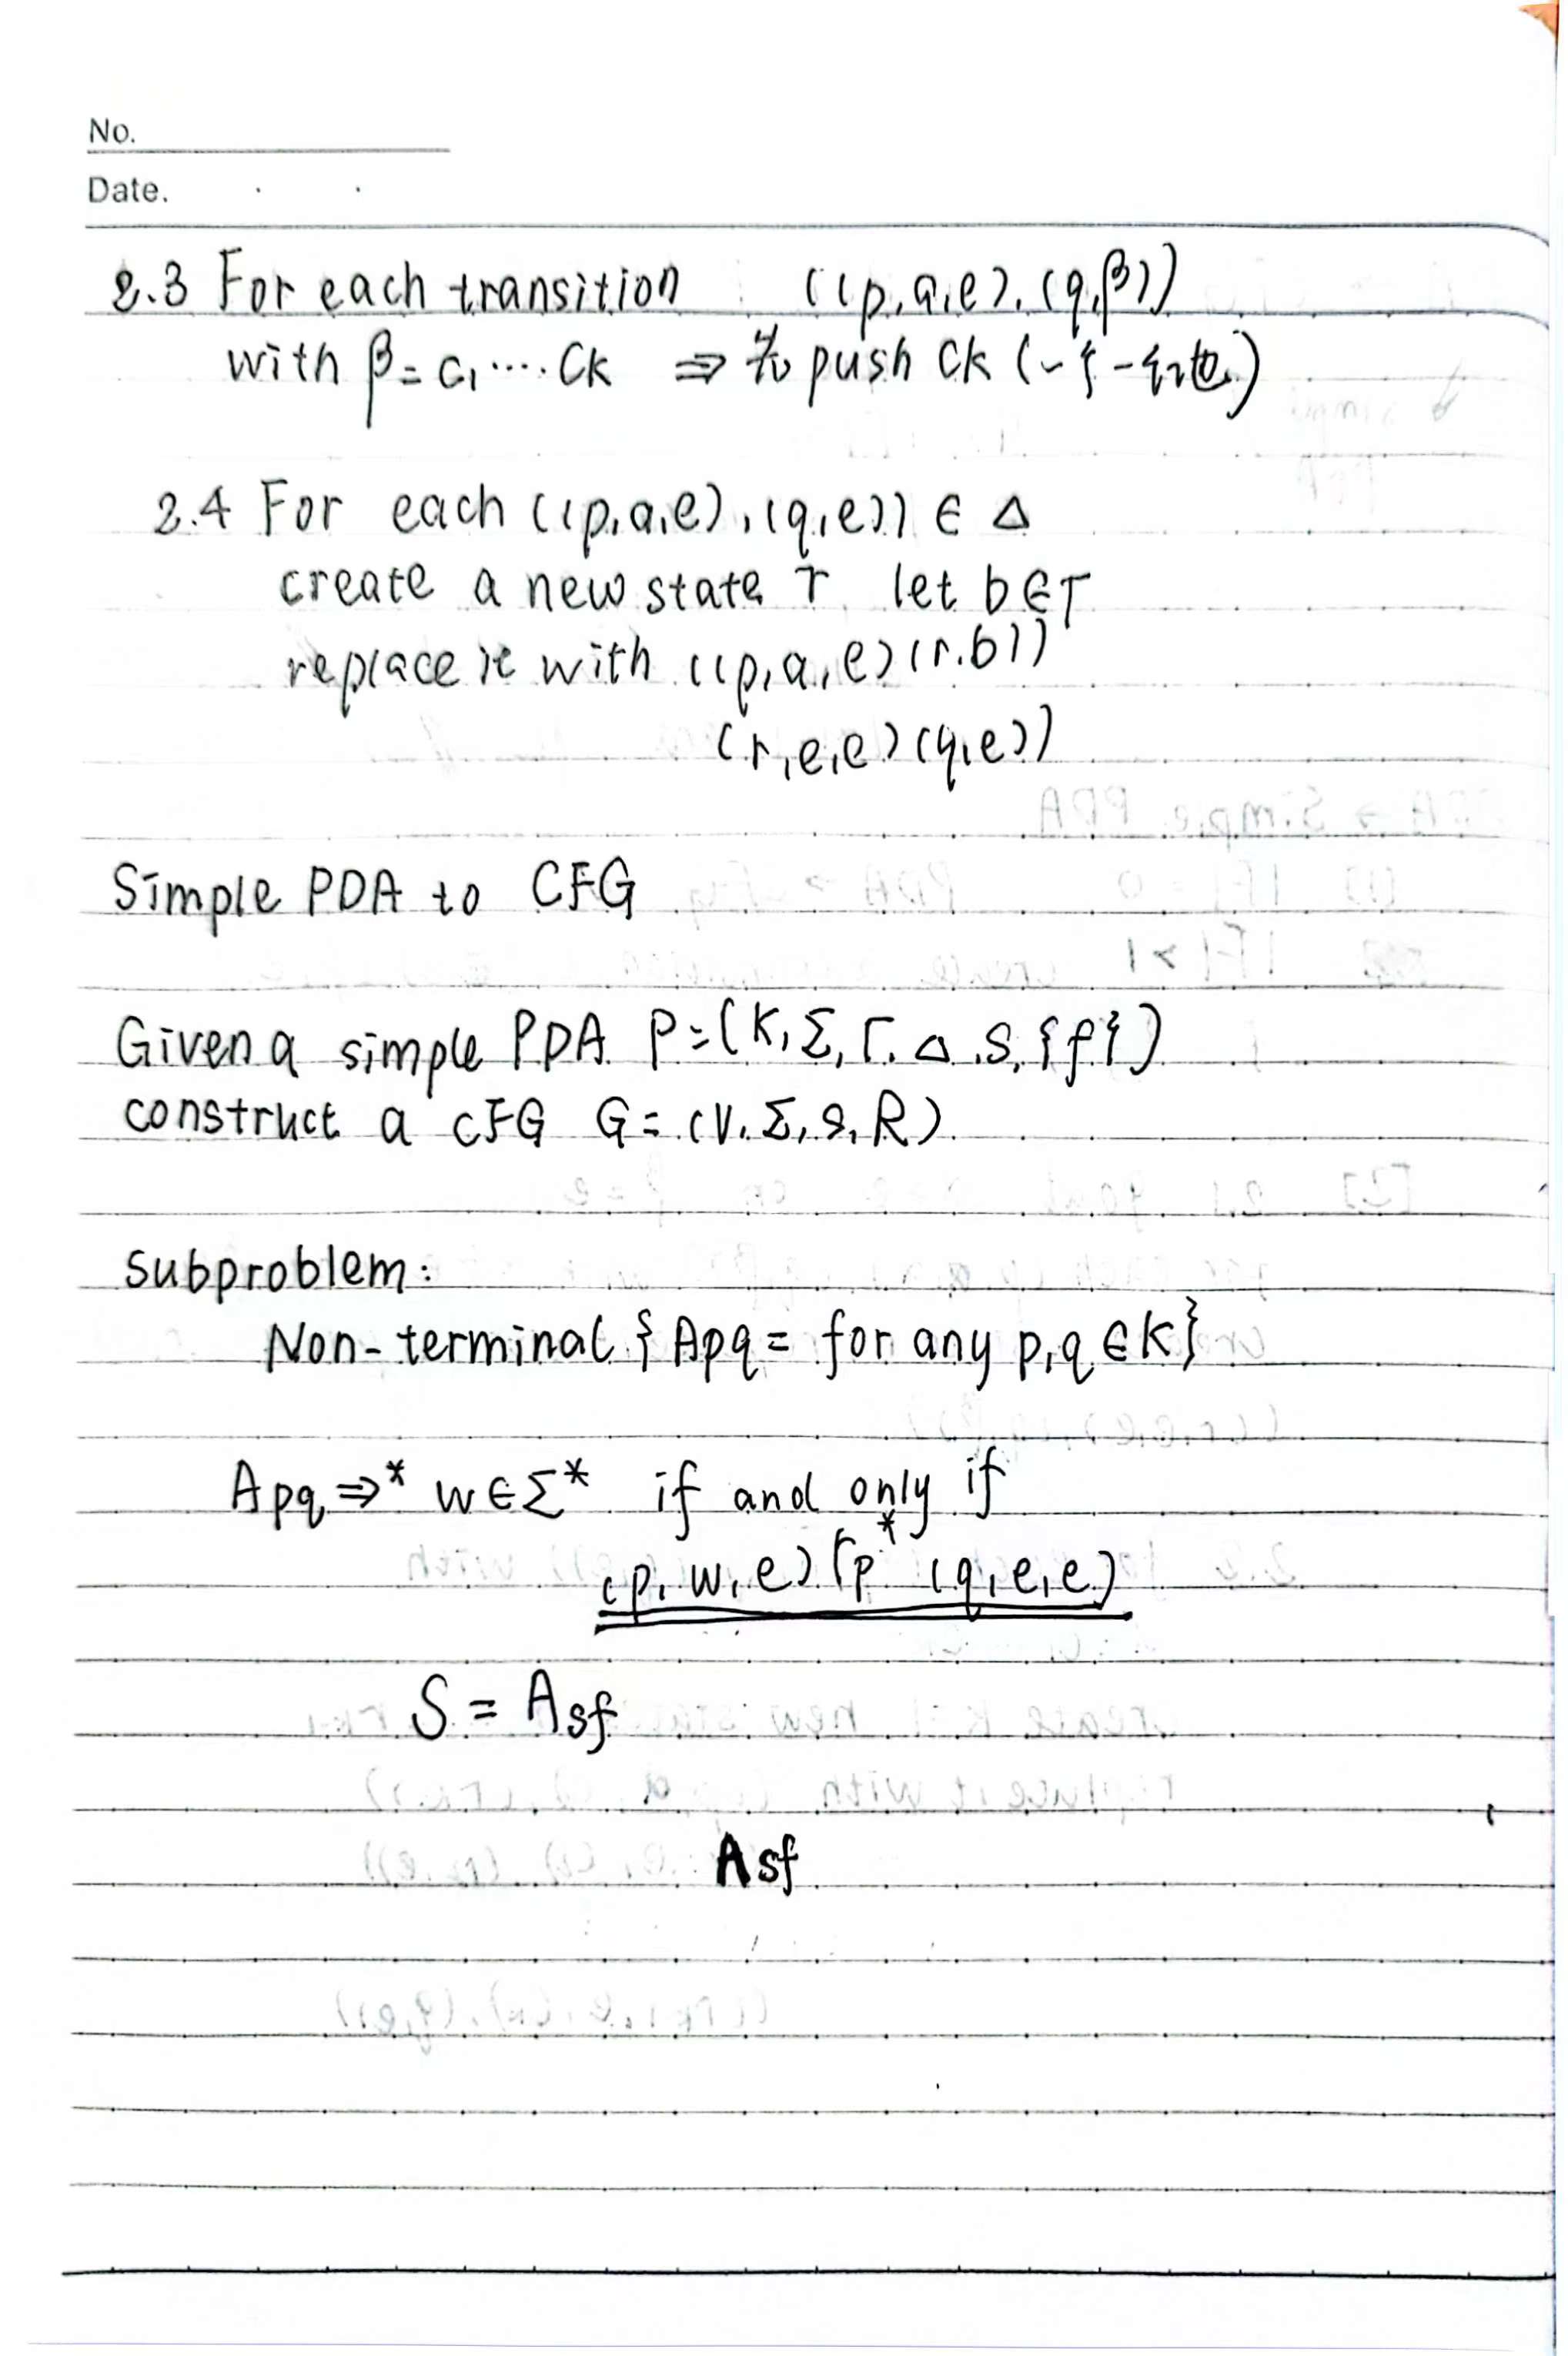 No.
Date.
2.3 For each transition ((p,a,e),(q,β))
with β=c1....Ck ⇒ 先 push Ck
2.4 For each ((p,a,e),(q,e)) ∈ Δ
create a new state r let b∈Γ
replace it with ((p,a,e)(r,b))
(r,e,e)(q,e))
Simple PDA to CFG
Given a simple PDA P=(K,Σ,Γ,Δ,s,{f})
construct a CFG G=(V,Σ,S,R)
subproblem:
Non-terminal {Apq= for any p,q∈K}
Apq⇒* w∈Σ* if and only if
(p,w,e)⊢p* (q,e,e)
S = Asf
Asf